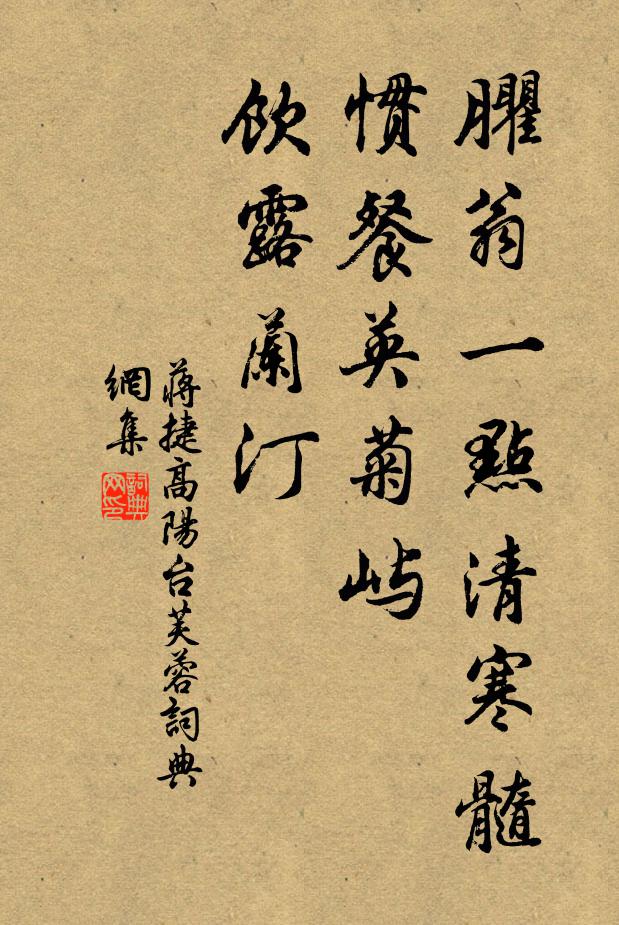 臞翁一點清寒髓
慣餐英菊嶼
飲露蘭汀
蔣捷高陽台芙蓉詞典
網集
詞典
网印